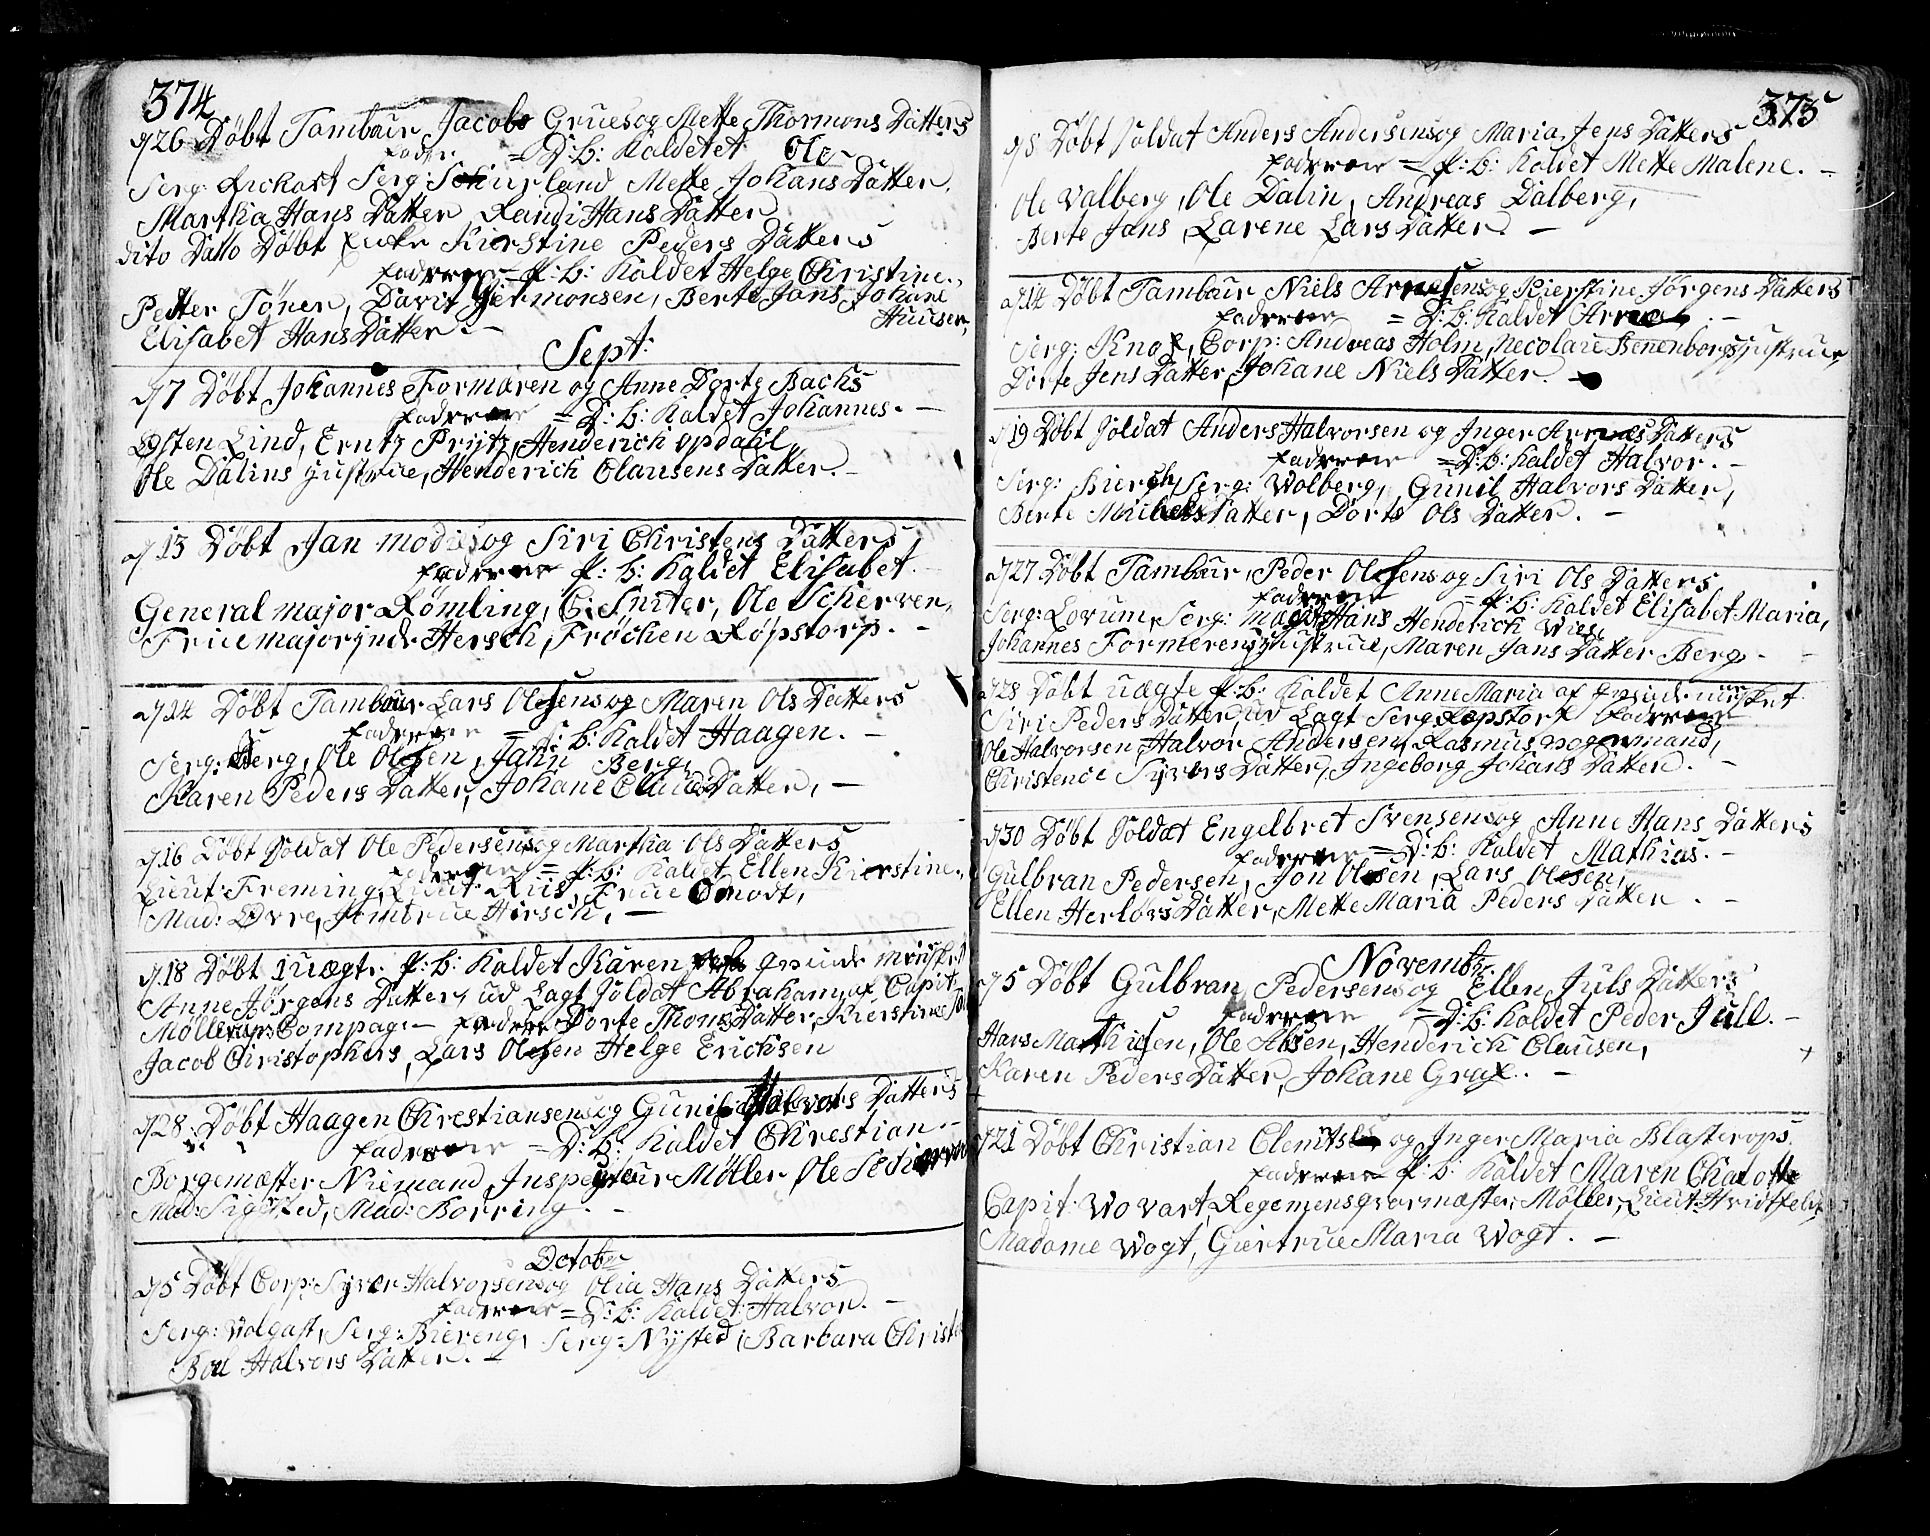 374
d 26 Døbt Tambour Jacobs Grues og Mette Thormons Datters
fader = D: b: Kaldet Ole
Serg: Serg: Schurland Mette Johans Datter,
Martha Hans Datter Randi Hans Datter
dito Datto Døbt Kierstine Peders Datters
Fadrene = P: b: Kaldet Helge Christine.,
Petter Töner, David Germonsen, Berte Jans Johane
Huuser,
Elisabet Hans Datter. —
Sept:
d 7 Døbt Johannes Formæren og Anne Dorte Bachs
Fadrene = D: b: Kaldet Johannes. —
Østen Lind, Erntz Prytz, Henderich opdahl,
Ole Dalins justrue, Henderich Clausens Datter. —
d 13 Døbt Jan modies og Siri Christens Datters
Fadrene P: b: Kaldet Elisabet.
General major Rømling, C: Sniter, Ole Scherven,
Frue majorinde Hersch, Frøchen Røpstorp. —
d 14 Døbt Tambour Lars Olesens og Maren Ols Datters
Fadrene = D: b: Kaldet Haagen. —
Serg: Berg, Ole Olesen, Jahn Berg,
Karen Peders Datter, Johane Datter, —
d 16 Døbt Soldat Ole Pedersens og Martha Ols Datters
Fadrene = P: b: Kaldet Ellen Kierstine.,
Lieut: Freming, Lieut: Riis, Frue Omodt,
Mad: Øvre, Jomfrue Hirsch, —
d 18 Døbt 1 uægte P: b: Kaldet Karen qvinde
Anne Jørgens Datter, ud Lagt Soldat Abraham af Capit:
Møllers Compag: — Fadrene Dorte Thoms Datter, Kierstine
Jacob Christophers, Lars Olesen Helge Erichsen
d 28 Døbt Haagen Chrestiansens og Gunil Halvors Datters
Fadrene = D: b: Kaldet Chrestian —
Borgemæster Niemand, Inspecteur Møller Ole Scherven
Mad: Sigsted, Mad: Borring. —
October
d 5 Døbt Corp: Syver Halvorsens og Olia Hans Datters
Fadrene = D: b: Kaldet Halvor. —
Serg: Volgast, Serg: Biereng, Serg: Nysted, Barbara Christ
Boel Halvors Datter. —
375
d 5 Døbt Soldat Anders Andersens og Maria Jens Datters
Fadrene = P: b: Kaldet Mette Malene. —
Ole Valberg, Ole Dalin, Andreas Dalberg,
Berte Jans, Larene Lars Datter. —
d 14 Døbt Tambour Niels Arnesens og Kierstine Jørgens Datters
Fadrene = D: b: Kaldet Arne. —
Serg: Knof, Corp: Andreas Holm, Necolai Benenborgs justrue,
Dorte Jens Datter, Johane Niels Datter. —
d 19 Døbt Soldat Anders Halvorsen og Inger Arnes Datters
Fadrene = D: b: Kaldet Halvor. —
Serg: Hiersch, Serg: Wolberg, Gunil Halvors Datter,
Berte Michels Datter, Dorte Ols Datter. —
d 27 Døbt Tambour, Peder Olesens og Siri Ols Datters
Fadrene = P: b: Kaldet Elisabet Maria,
Serg: Lorum, Serg: Hans Henderich Wies,
Johannes Formerens justrue, Maren Jans Datter Berg. —
d 28 Døbt uægte P: b: Kaldet Anne Maria af qvinde mennisket
Siri Peders Datter, ud Lagt Serg: Røpstorf Fadrene
Ole Halvorsen, Halvor Andersen, Rasmus mand,
Christence Syvers Datter, Ingeborg Johans Datter. —
d 30 Døbt Soldat Engelbret Svensens og Anne Hans Datters
Fadrene = D: b: Kaldet Mathias. —
Gulbran Pedersen, Jon Olesen, Lars Olesen,
Ellen Herlørs Datter, Mette Maria Peders Datter. —
Novembr:
d 5 Døbt Gulbran Pedersens og Ellen Juls Datters
Fadrene = D: b: Kaldet Peder Jull. —
Hans Mathiesen, Ole Alsen, Henderich Clausen,
Karen Peders Datter, Johane Grax. —
d 21 Døbt Christian og Inger Maria Blasterops
Fadrene P: b: Kaldet Maren Chalotte
Capit: Wovart, Regemensqvarmæster, Møller, Lieut: Hvidtfeldt,
Madame Wogt, Giertrue Maria Wogt. —